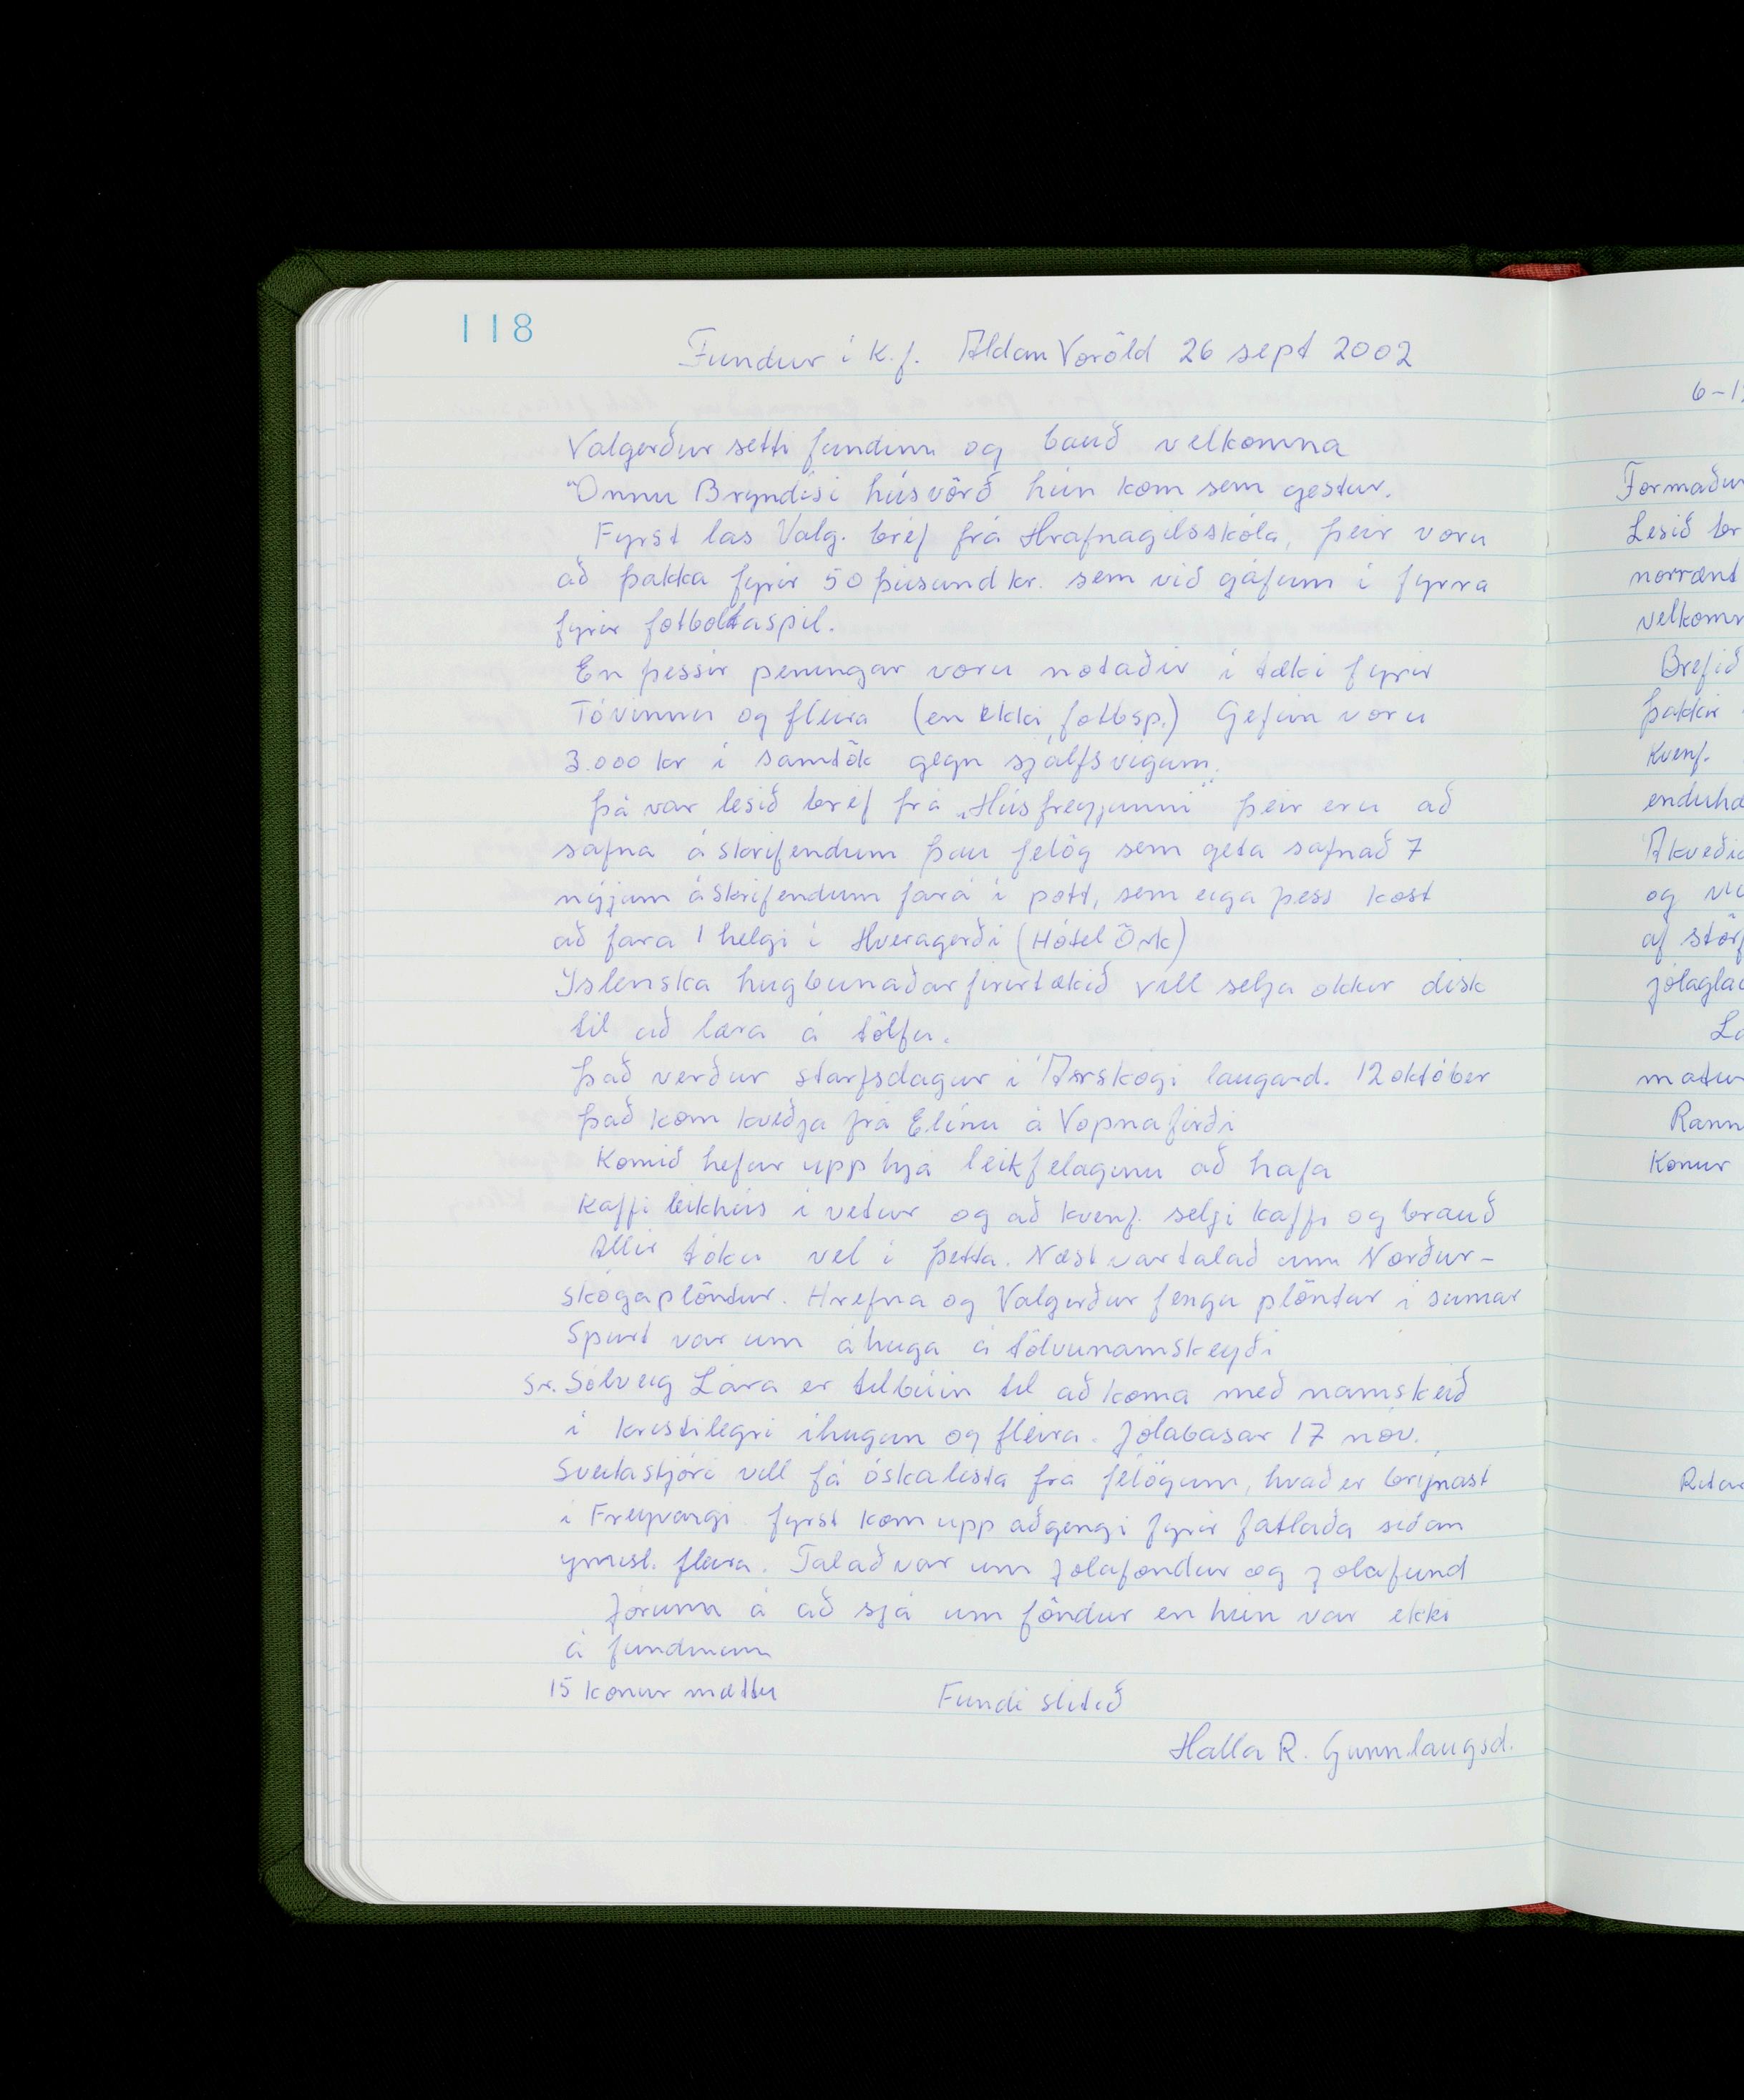 118
Fundur í K.f. Aldan Voröld 26 sept 2002
Valgerður setti fundinn og bauð velkomna
Önnu Bryndísi húsvörð hún kom sem gestur.
Fyrst las Valg. bréf frá Hrafnagilsskóla, þeir voru
að þakka fyrir 50 þúsund kr. sem við gáfum í fyrra
fyrir fotboltaspil.
En þessir peningar voru notaðir í tæki fyrir
Tóvinnu og fleira (en ekki fotbsp.) Gefin voru
3.000 kr í samtök gegn sjálfsvígum.
Þá var lesið bréf frá „Húsfreyjunni" þeir eru að
safna áskrifendum þau felög sem geta safnað 7
nýjum áskrifendum fara í pott, sem eiga þess kost
að fara 1 helgi í Hveragerði (Hótel Örk)
Islenska hugbunaðarfirirtækið vill selja okkur disk
til að læra á tölfu.
Það verður starfsdagur í Árskógi laugard. 12 október
Það kom kveðja frá Elínu á Vopnafirði
Komið hefur upp hjá leikfelaginu að hafa
Kaffi leikhús í vetur og að kvenf. selji kaffi og brauð
Allir tóku vel í þetta. Næst var talað um Norður-
skógaplöntur. Hrefna og Valgerður fengu plöntur í sumar
Spurt var um áhuga á tölvunamskeyði
Sr. Sólveig Lára er tilbúin til að koma með namskeið
í kristilegri íhugun og fleira. Jólabasar 17 nóv.
Sveitastjóri vill fá óskalista frá félögum, hvað er brýnast
í Freyvangi. fyrst kom upp aðgengi fyrir fatlaða siðan
ymisl. fleira. Talað var um Jolaföndur og jolafund
Jórunn á að sjá um föndur en hún var ekki
á fundinum
15 konur mættu Fundi slitið
Halla R. Gunnlaugsd.
6-1
Formaður
Lesið br
norrænt
velkomn
Brefið
þakkir
Kvenf.
enduhd
Akveðið
og
af störf
jólaglað
matur
Rann
Konur